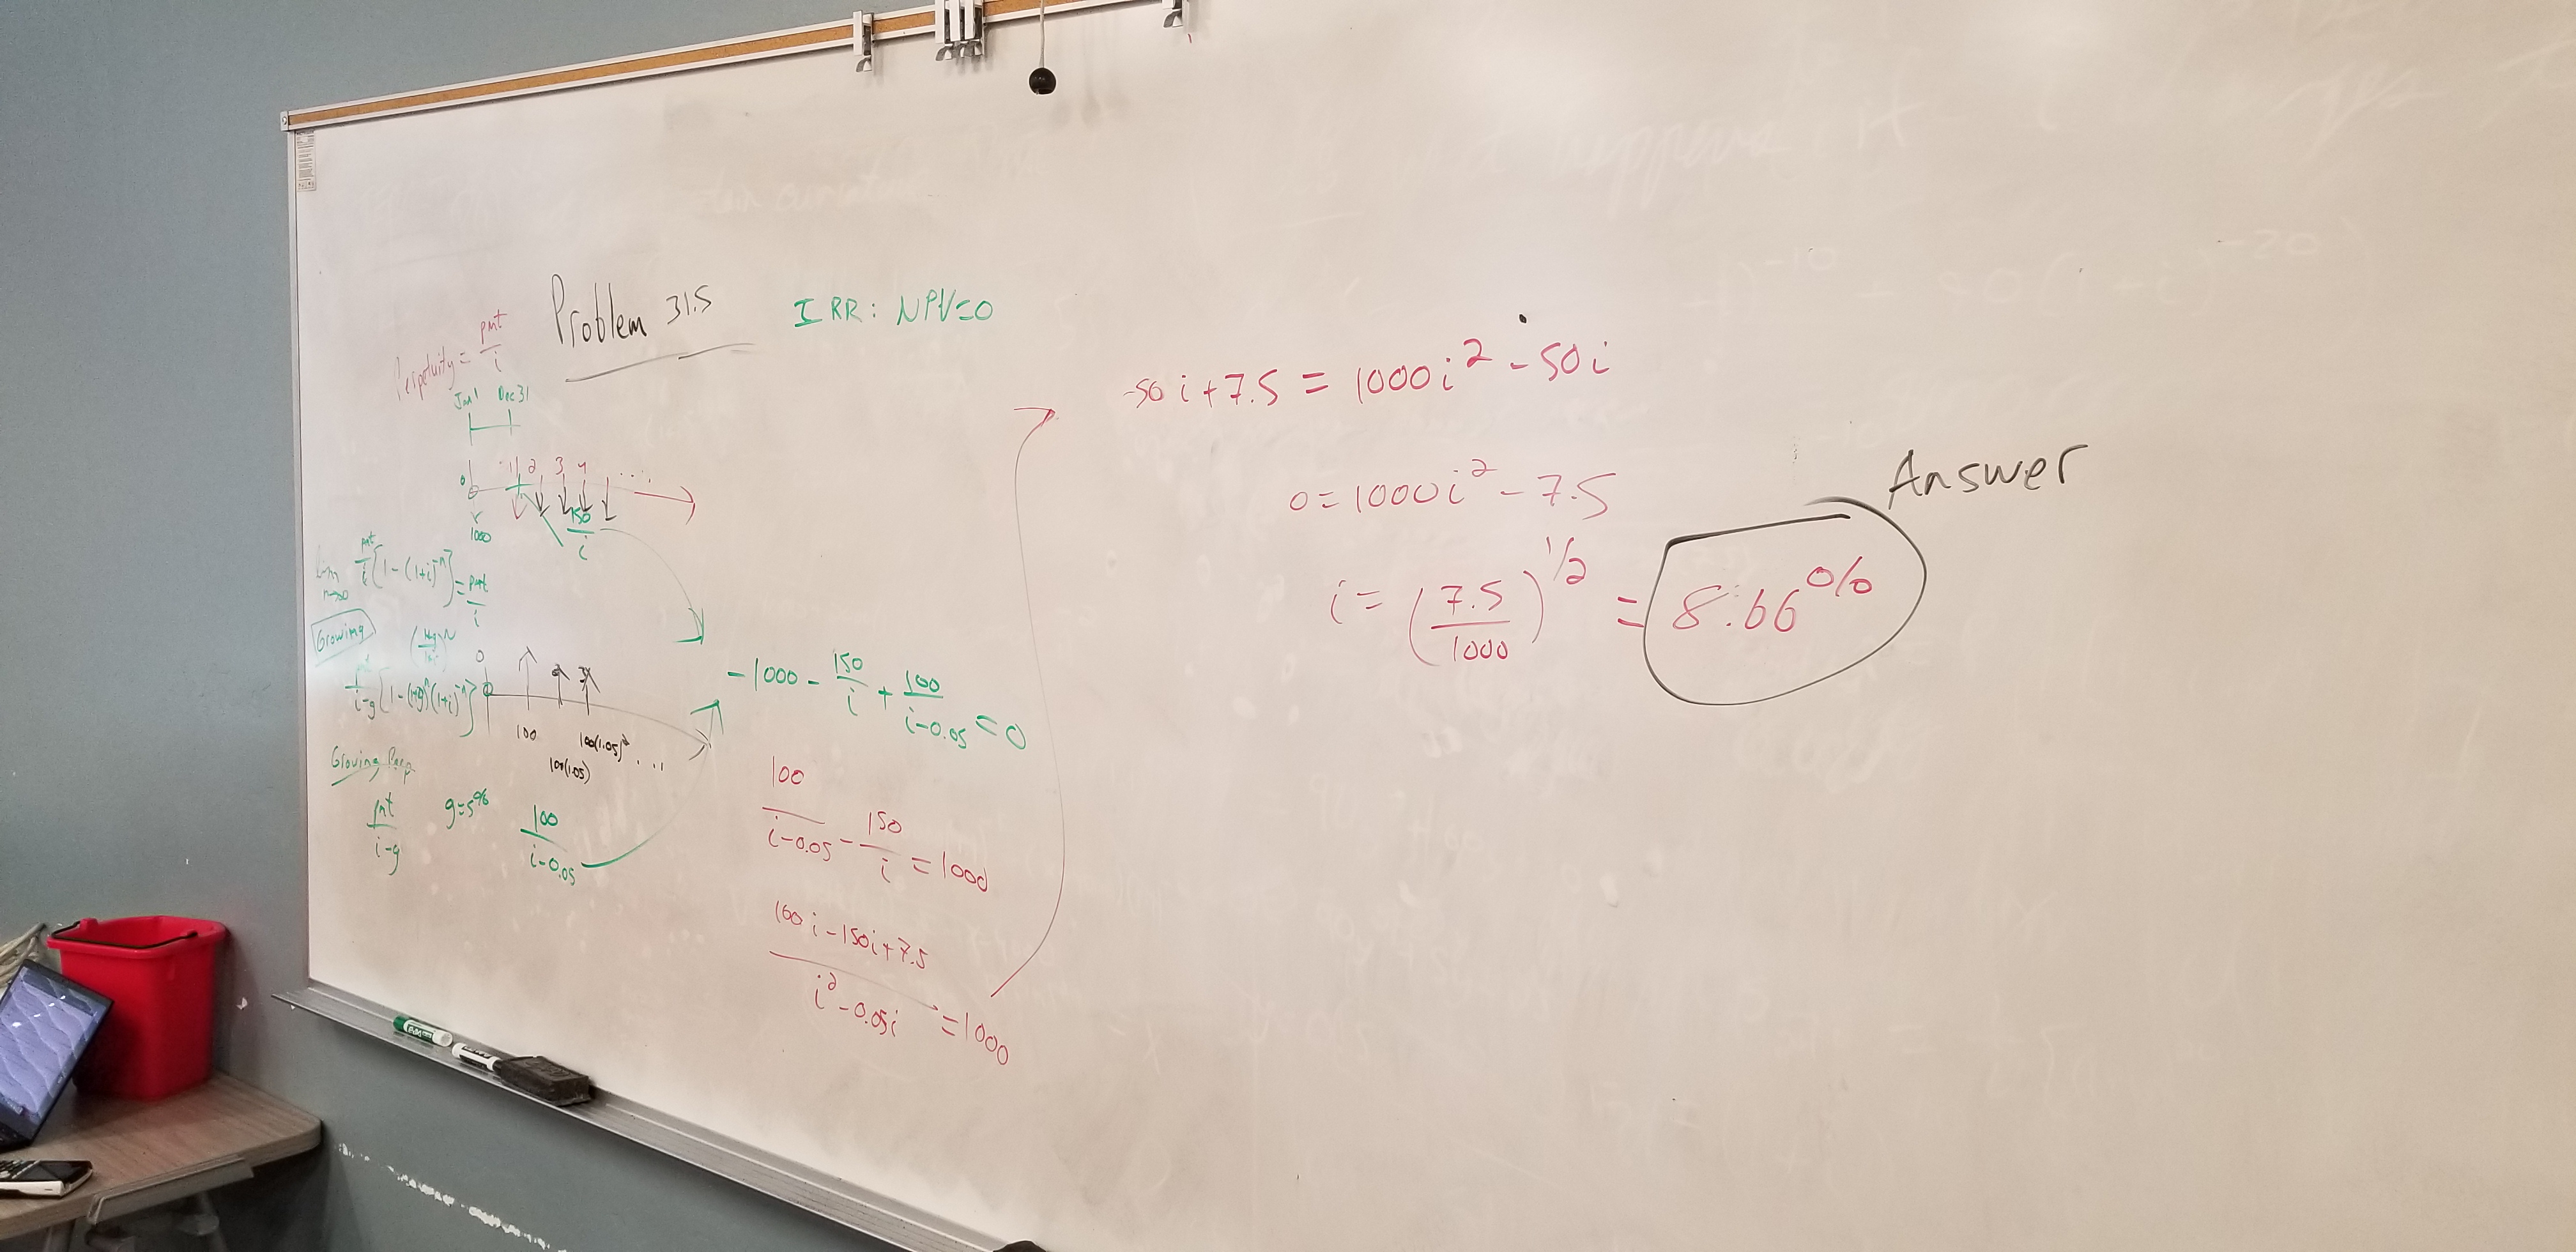 Problem 31.5
IRR: NPV=0
Perpetuity = pmt/i
Jan 1 Dec 31
0 1 2 3 4 ....
1000
150/i
Lim n→∞ pmt/i [1-(1+i)^-n] = pmt/i
Growing
0
i-g [1-(1+g)^n (1+i)^-n]
100
100(1.05)
100(1.05)² ...
Growing Perp
pmt/i-g g=5% 100/i-0.05
-1000 - 150/i + 100/i-0.05 = 0
100/i-0.05 - 150/i = 1000
100i-150i+7.5/i²-0.05i = 1000
-50i+7.5 = 1000i² - 50i
0=1000i² - 7.5
i = (7.5/1000)^1/2 = 8.66%
Answer